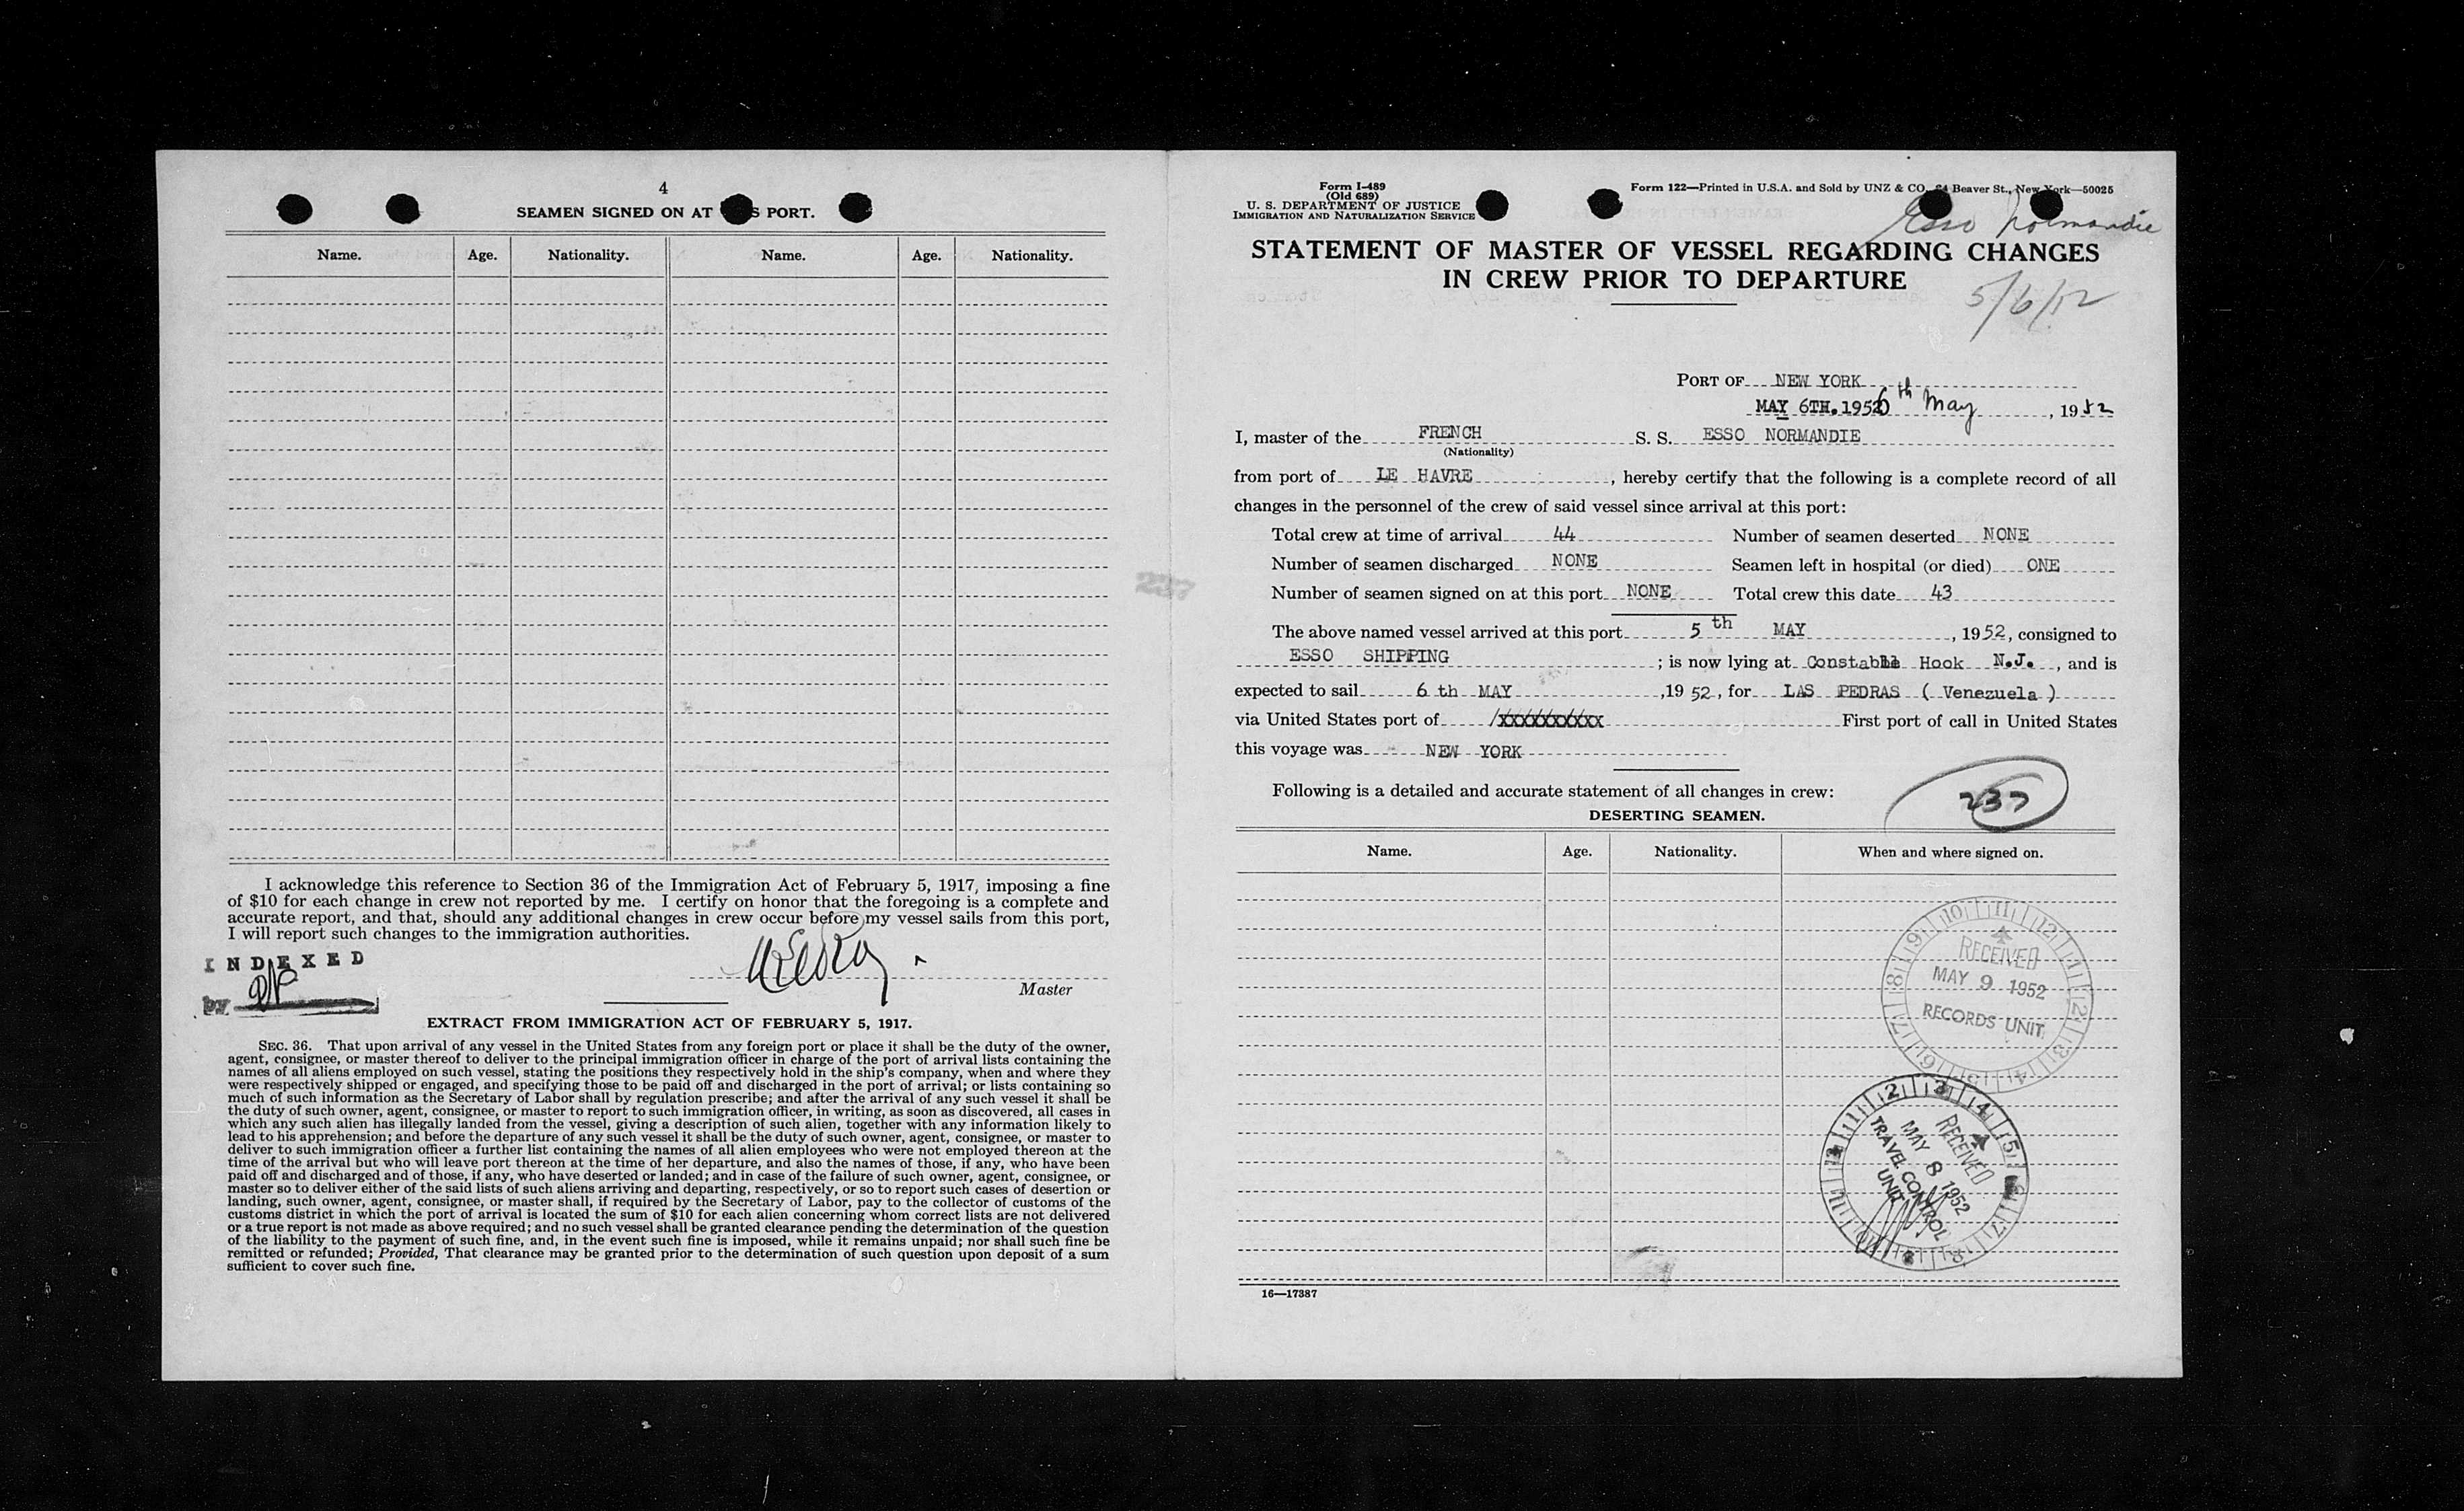 4
SEAMEN SIGNED ON AT S PORT.
Name. Age. Nationality. Name. Age. Nationality.
I acknowledge this reference to Section 36 of the Immigration Act of February 5, 1917, imposing a fine
of $10 for each change in crew not reported by me. I certify on honor that the foregoing is a complete and
accurate report, and that, should any additional changes in crew occur before my vessel sails from this port,
I will report such changes to the immigration authorities.
INDEXED
by
Master
EXTRACT FROM IMMIGRATION ACT OF FEBRUARY 5, 1917.
SEC. 36. That upon arrival of any vessel in the United States from any foreign port or place it shall be the duty of the owner,
agent, consignee, or master thereof to deliver to the principal immigration officer in charge of the port of arrival lists containing the
names of all aliens employed on such vessel, stating the positions they respectively hold in the ship's company, when and where they
were respectively shipped or engaged, and specifying those to be paid off and discharged in the port of arrival; or lists containing so
much of such information as the Secretary of Labor shall by regulation prescribe; and after the arrival of any such vessel it shall be
the duty of such owner, agent, consignee, or master to report to such immigration officer, in writing, as soon as discovered, all cases in
which any such alien has illegally landed from the vessel, giving a description of such alien, together with any information likely to
lead to his apprehension; and before the departure of any such vessel it shall be the duty of such owner, agent, consignee, or master to
deliver to such immigration officer a further list containing the names of all alien employees who were not employed thereon at the
time of the arrival but who will leave port thereon at the time of her departure, and also the names of those, if any, who have been
paid off and discharged and of those, if any, who have deserted or landed; and in case of the failure of such owner, agent, consignee, or
master so to deliver either of the said lists of such aliens arriving and departing, respectively, or so to report such cases of desertion or
landing, such owner, agent, consignee, or master shall, if required by the Secretary of Labor, pay to the collector of customs of the
customs district in which the port of arrival is located the sum of $10 for each alien concerning whom correct lists are not delivered
or a true report is not made as above required; and no such vessel shall be granted clearance pending the determination of the question
of the liability to the payment of such fine, and, in the event such fine is imposed, while it remains unpaid; nor shall such fine be
remitted or refunded; Provided, That clearance may be granted prior to the determination of such question upon deposit of a sum
sufficient to cover such fine.
237
Form I-489
(Old 689)
U. S. DEPARTMENT OF JUSTICE
IMMIGRATION AND NATURALIZATION SERVICE
Form 122—Printed in U.S.A. and Sold by UNZ & CO. 24 Beaver St., New York—50025
Esso Normandie
STATEMENT OF MASTER OF VESSEL REGARDING CHANGES
IN CREW PRIOR TO DEPARTURE
5/6/52
PORT OF NEW YORK
MAY 6TH. 1952 6th May, 1952
I, master of the FRENCH S. S. ESSO NORMANDIE
(Nationality)
from port of LE HAVRE, hereby certify that the following is a complete record of all
changes in the personnel of the crew of said vessel since arrival at this port:
Total crew at time of arrival 44 Number of seamen deserted NONE
Number of seamen discharged NONE Seamen left in hospital (or died) ONE
Number of seamen signed on at this port NONE Total crew this date 43
The above named vessel arrived at this port 5 th MAY, 1952, consigned to
ESSO SHIPPING; is now lying at Constable Hook N.J., and is
expected to sail 6 th MAY, 1952, for LAS PEDRAS ( Venezuela )
via United States port of /xxxxxxxxxx First port of call in United States
this voyage was NEW YORK
Following is a detailed and accurate statement of all changes in crew:
237
DESERTING SEAMEN.
Name. Age. Nationality. When and where signed on.
RECEIVED
MAY 9 1952
RECORDS UNIT
RECEIVED
MAY 8 1952
TRAVEL CONTROL
UNIT
16—17387